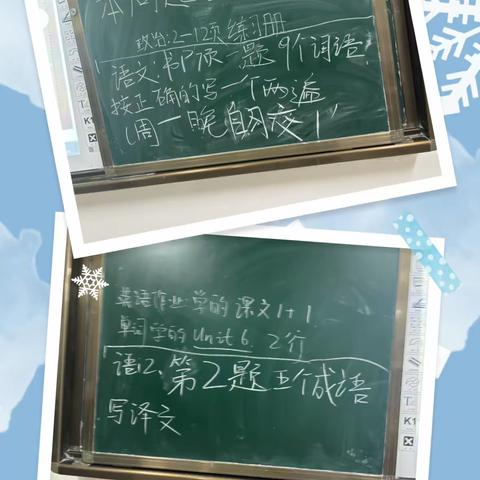 政治:2-12页练习册
语文:书P页一题9个词语.
按正确的写一个两遍
(周一晚自习交)
英语作业:学的课文1+1
单词学的Unit 6. 2行
语2、第2题五个成语
写译文
T
K1